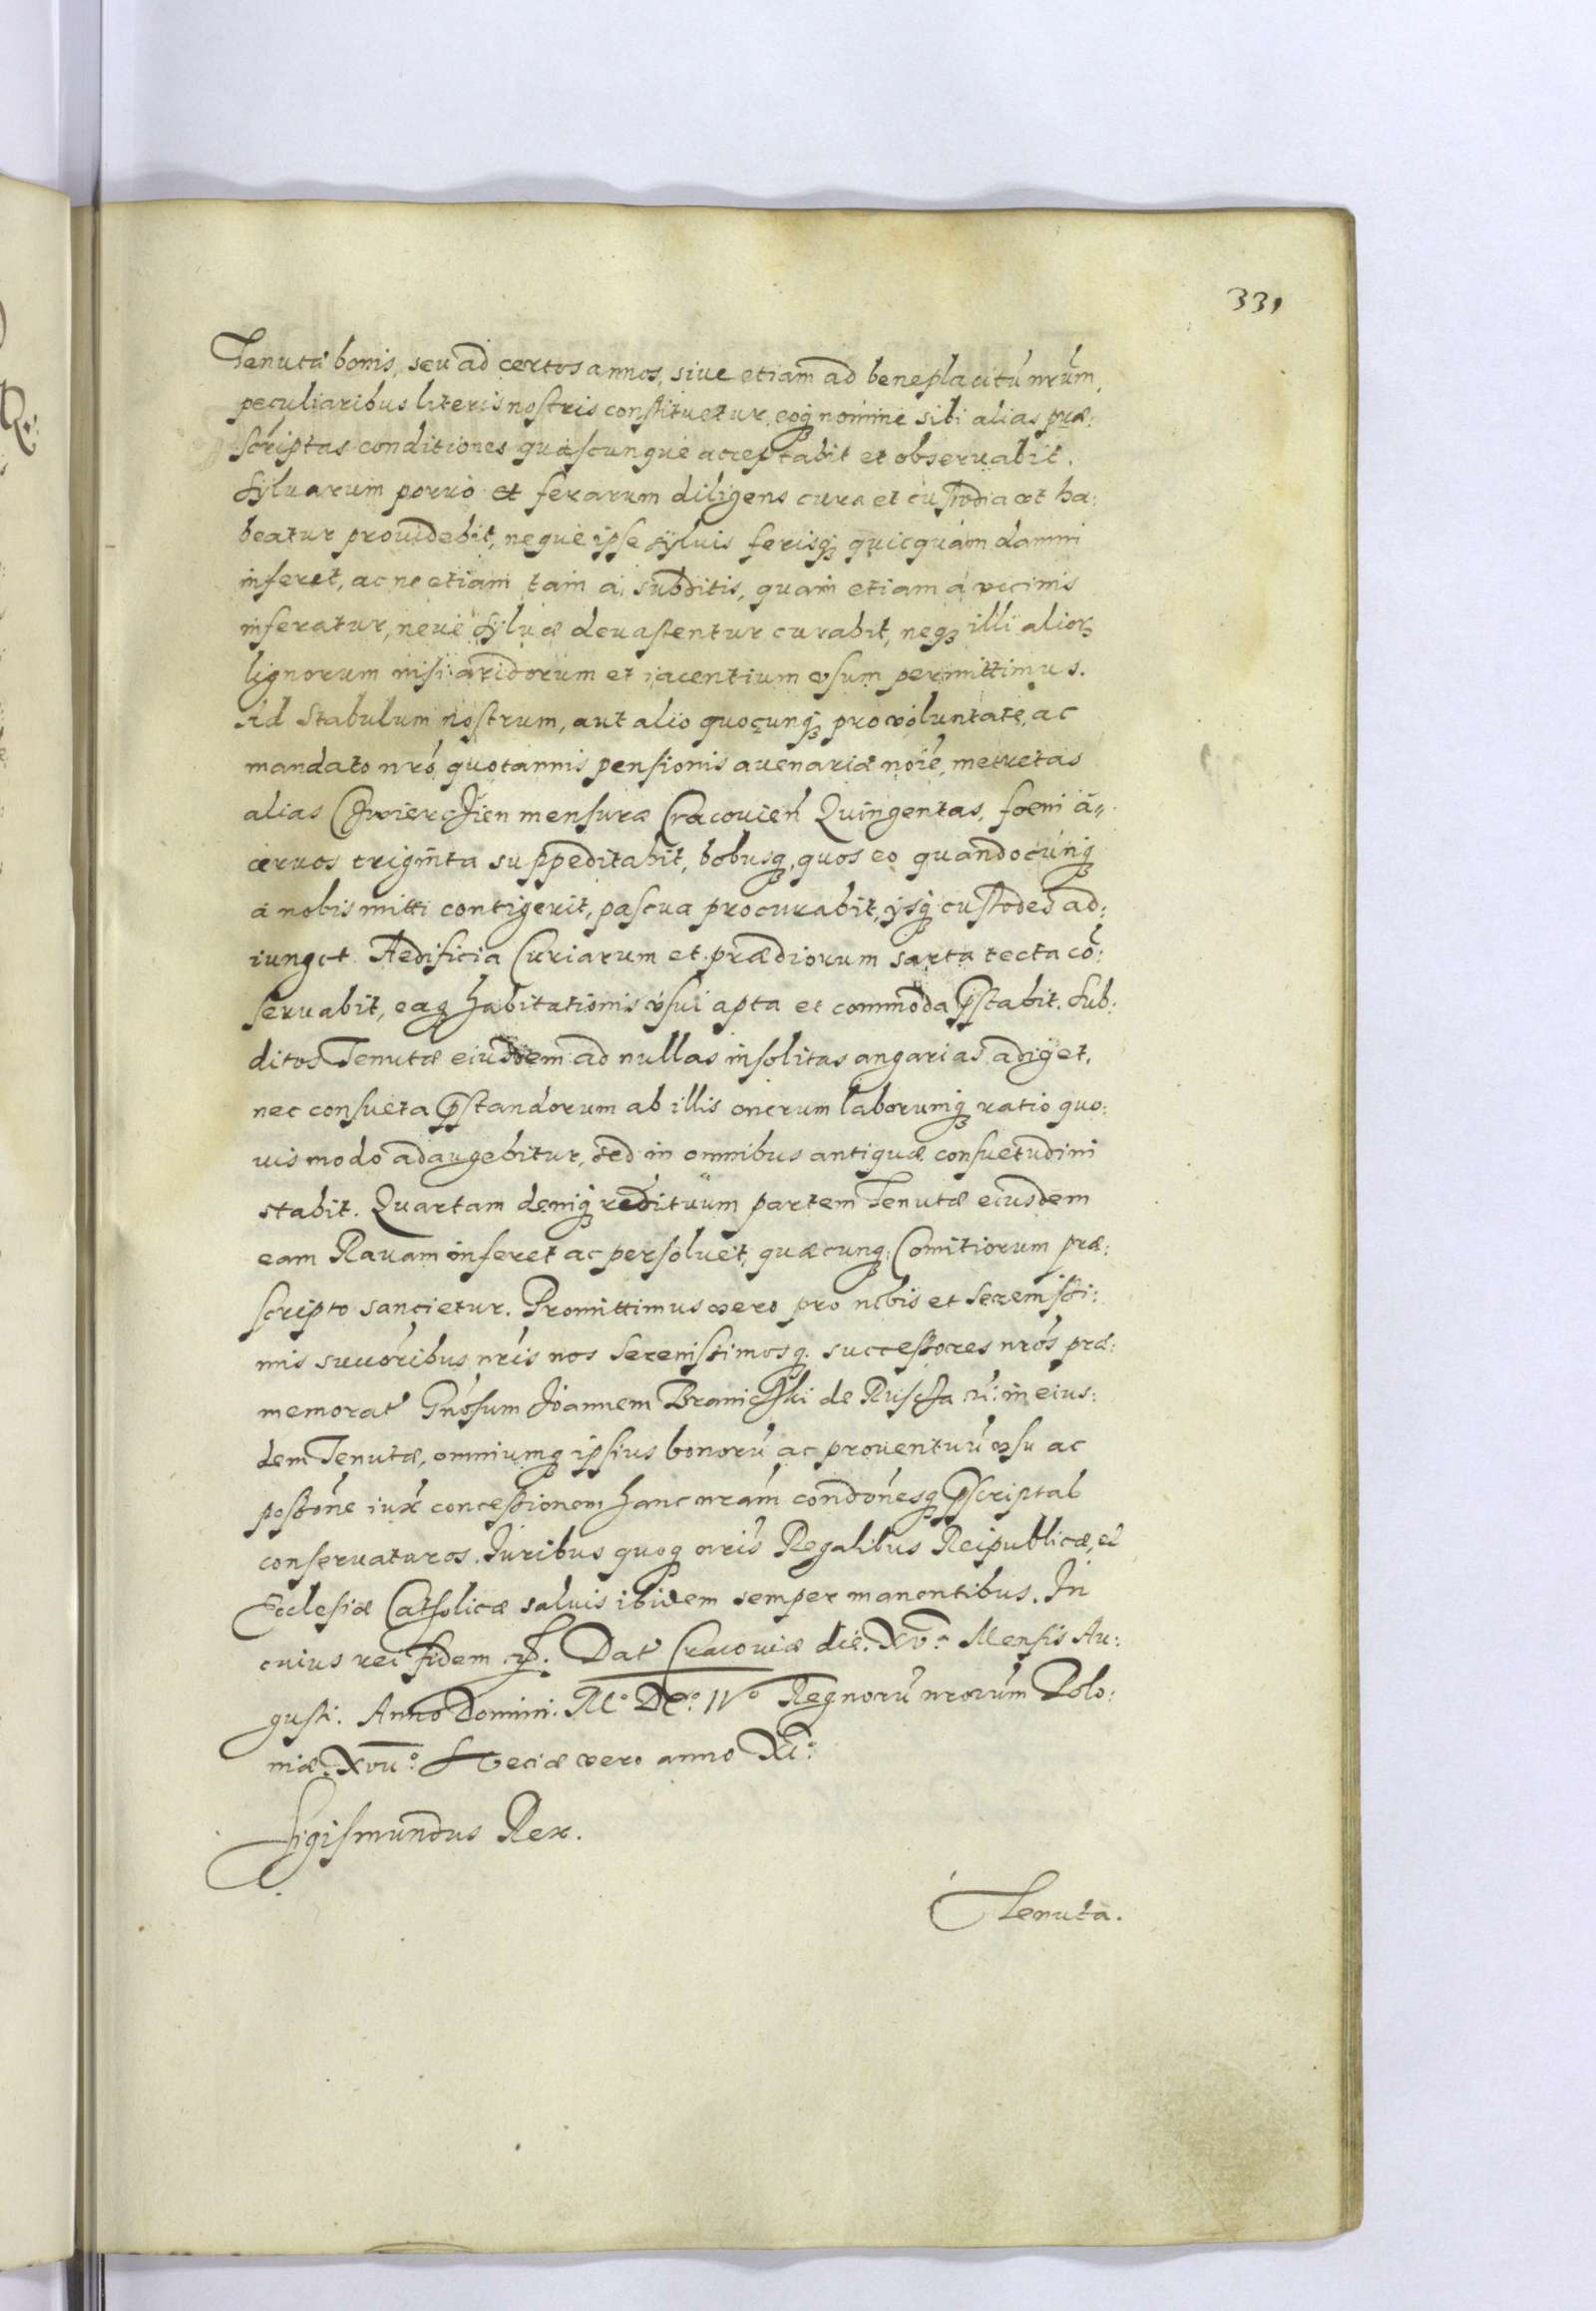 331
Tenutæ bonis, seu ad certos annos, siue etiam ad beneplacitũ nr̃um,
peculiaribus literis nostris constituetur, eoq́ꝫ nomine sibi alias præ:
scriptas conditiones quascunque acceptabit et obseruabit.
Syluarum porro et ferarum diligens cura et custodia vt ha:
beatur prouidebit, neque ipse syluis ferisqꝫ quicquam damni
inferet, ac ne etiam tam à subditis, quam etiam à vicinis
inferatur, neue syluæ deuastentur curabit, neqꝫ illi alioꝝ
lignorum nisi aridorum et iacentium vsum permittimus.
Ad Stabulum nostrum, aut alio quocunqꝫ pro voluntate, ac
mandato nr̃o quotannis pensionis auenariæ noĩe, metretas
alias Czwierczien mensuræ Cracouień Quingentas, foeni a„
ceruos triginta suppeditabit, bobusqꝫ, quos eo quandocunqꝫ
a nobis mitti contigerit, pascua procurabit, ijsqꝫ custodes ad:
iunget. Aedificia Curiarum et prædiorum sarta tecta cõ:
seruabit, eaqꝫ habitationis vsui apta et commoda p̃stabit. Sub:
ditos Tenutæ eiusdem ad nullas insolitas angarias adiget,
nec consueta p̃standorum ab illis onerum laborumqꝫ ratio quo:
uis modo adaugebitur, sed in omnibus antiquæ consuetudini
stabit. Quartam deniqꝫ redituum partem Tenutæ eiusdem
eam Rauam inferet ac persoluet, quæcunqꝫ Comitiorum præ:
scripto sancietur. Promittimus vero pro nobis et Serenissi:
mis succ̃oribus nr̃is nos Serenissimosqꝫ successores nr̃os præ:
memorat̃ Gñosum Joannem Braniczki de Ruscza ñ: in eius:
dem Tenutæ, omniumqꝫ ipsius bonorũ ac prouentuũ vsu ac
possõne iux̃ concessionem hanc nr̃am condõnesqꝫ p̃scriptas
conseruaturos. Juribus quoqꝫ nr̃is Regalibus Reipublicæ, et
Ecclesiæ Catholicæ saluis ibidem semper manentibus. In
cuius rei fidem ꝛc̃. Dat̃ Cracouiæ die. XV.ᵃ Mensis Au:
gusti. Anno Domini. M.º DC.º IVº Regnorũ nrorũm Polo:
niæ XVII.º Sueciæ vero anno XI.º
Sigismundus Rex.
Tenuta.